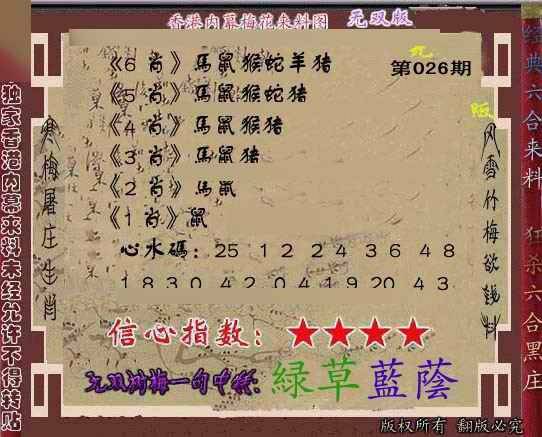 香港内幕梅花来料图 无双版
《6 肖》馬鼠猴蛇羊猪
第026期
《5 肖》馬鼠猴蛇猪
《4 肖》馬鼠猴猪
《3 肖》馬鼠猪
《2 肖》馬鼠
《1 肖》鼠
心水碼：25 12 24 36 48
18 30 42 04 19 20 43
信心指数：★★★★
无双湖梅一句中特：緑草藍蔭
版权所有 翻版必究
独家香港内幕来料未经允许不得转贴
寒梅屠庄生肖
风雪竹梅欲钱料
经典六合来料 狂杀六合黑庄